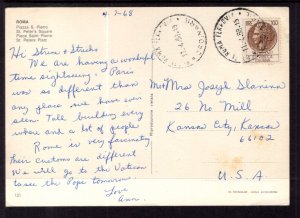 4-7-68
ROMA
Piazza S. Pietro
St. Peter's Square
Place Saint Pierre
St. Peters Platz
Hi Steve & Struchs
We are having a wonderful
time sightseeing. Paris
was so different than
any place we have ever
seen. Tall building every
where and a lot of people.
Rome is very fascinating
their customs are different
We will go to the Vatican
to see the Pope tomorrow.
Love
Ann.
Mr & Mrs Joseph Slanina
26 No Mill
Kansas City, Kansas
66102
U.S.A.
100